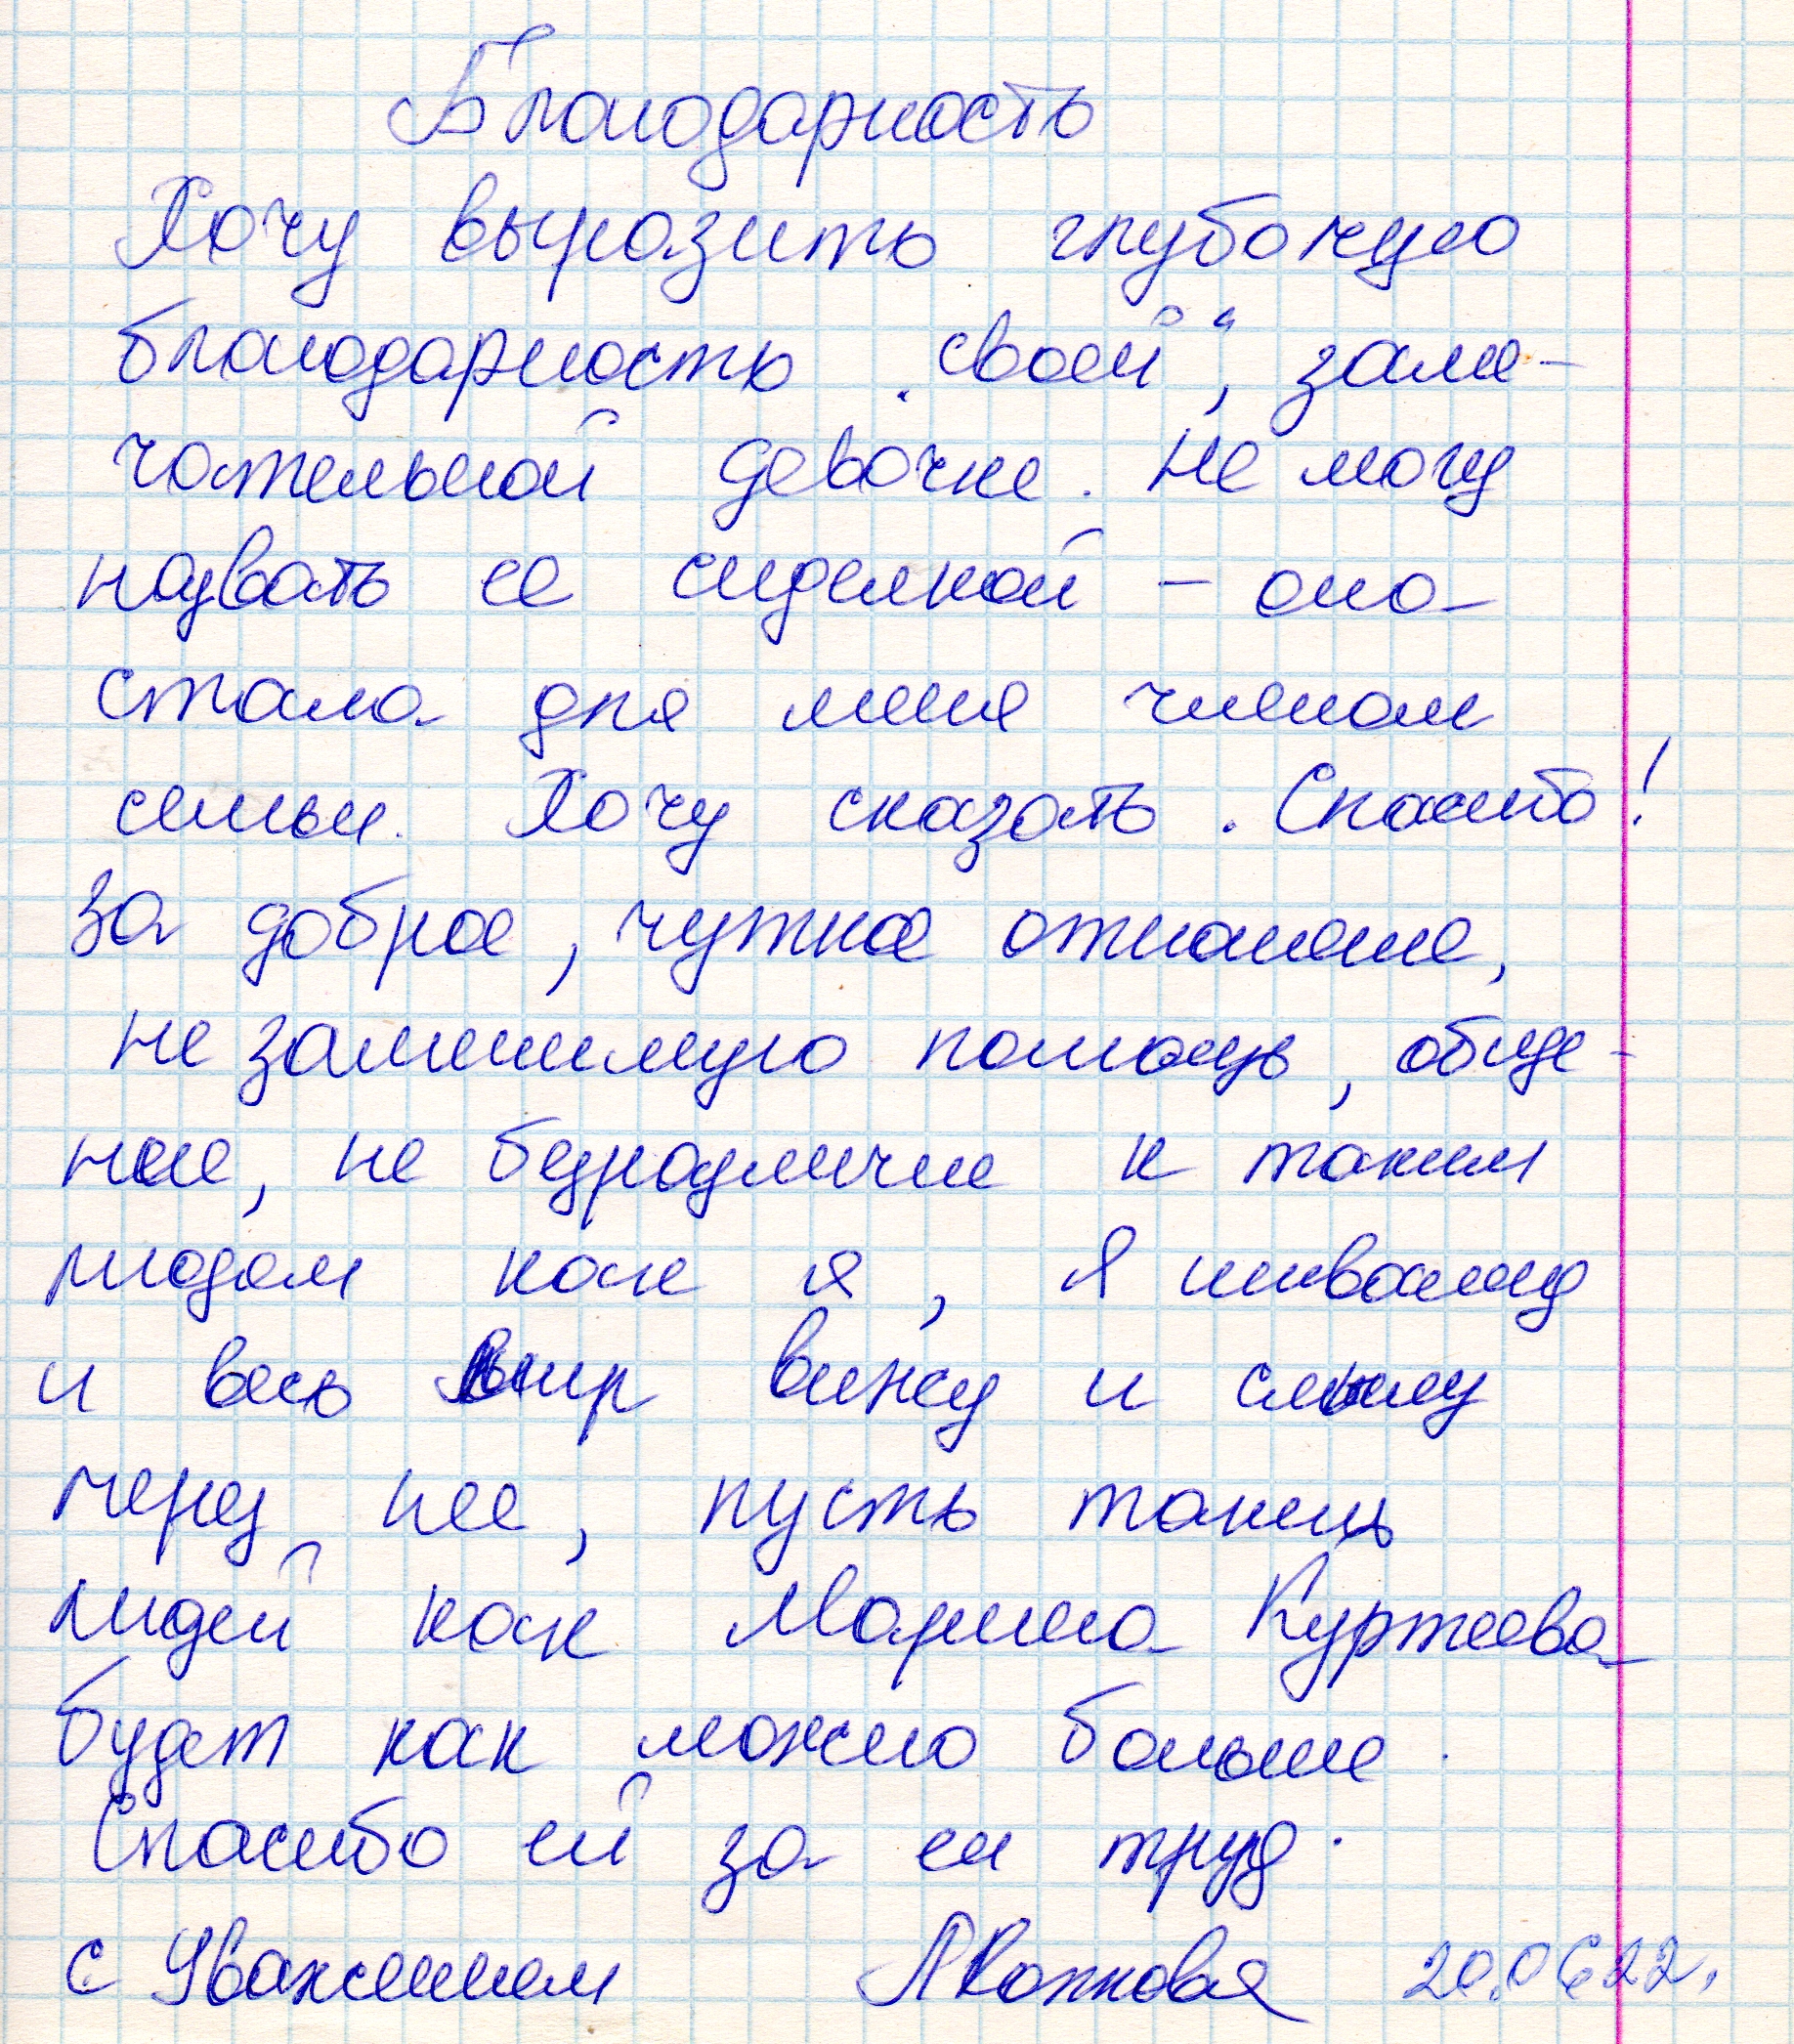 Благодарность
Хочу выразить глубокую
благодарность "своей", заме-
чательной девочке. Не могу
назвать ее сиделкой - она
стала для меня членом
семьи. Хочу сказать. Спасибо!
За доброе, чуткое отношение,
не заменимую помощь, обще-
ние, не безразличие к таким
людям как я, я инвалид
и весь мир вижу и слышу
через нее, пусть таких
людей как Марина Куртеева
будет как можно больше.
Спасибо ей за ее труд.
с Уважением 20.06.22.